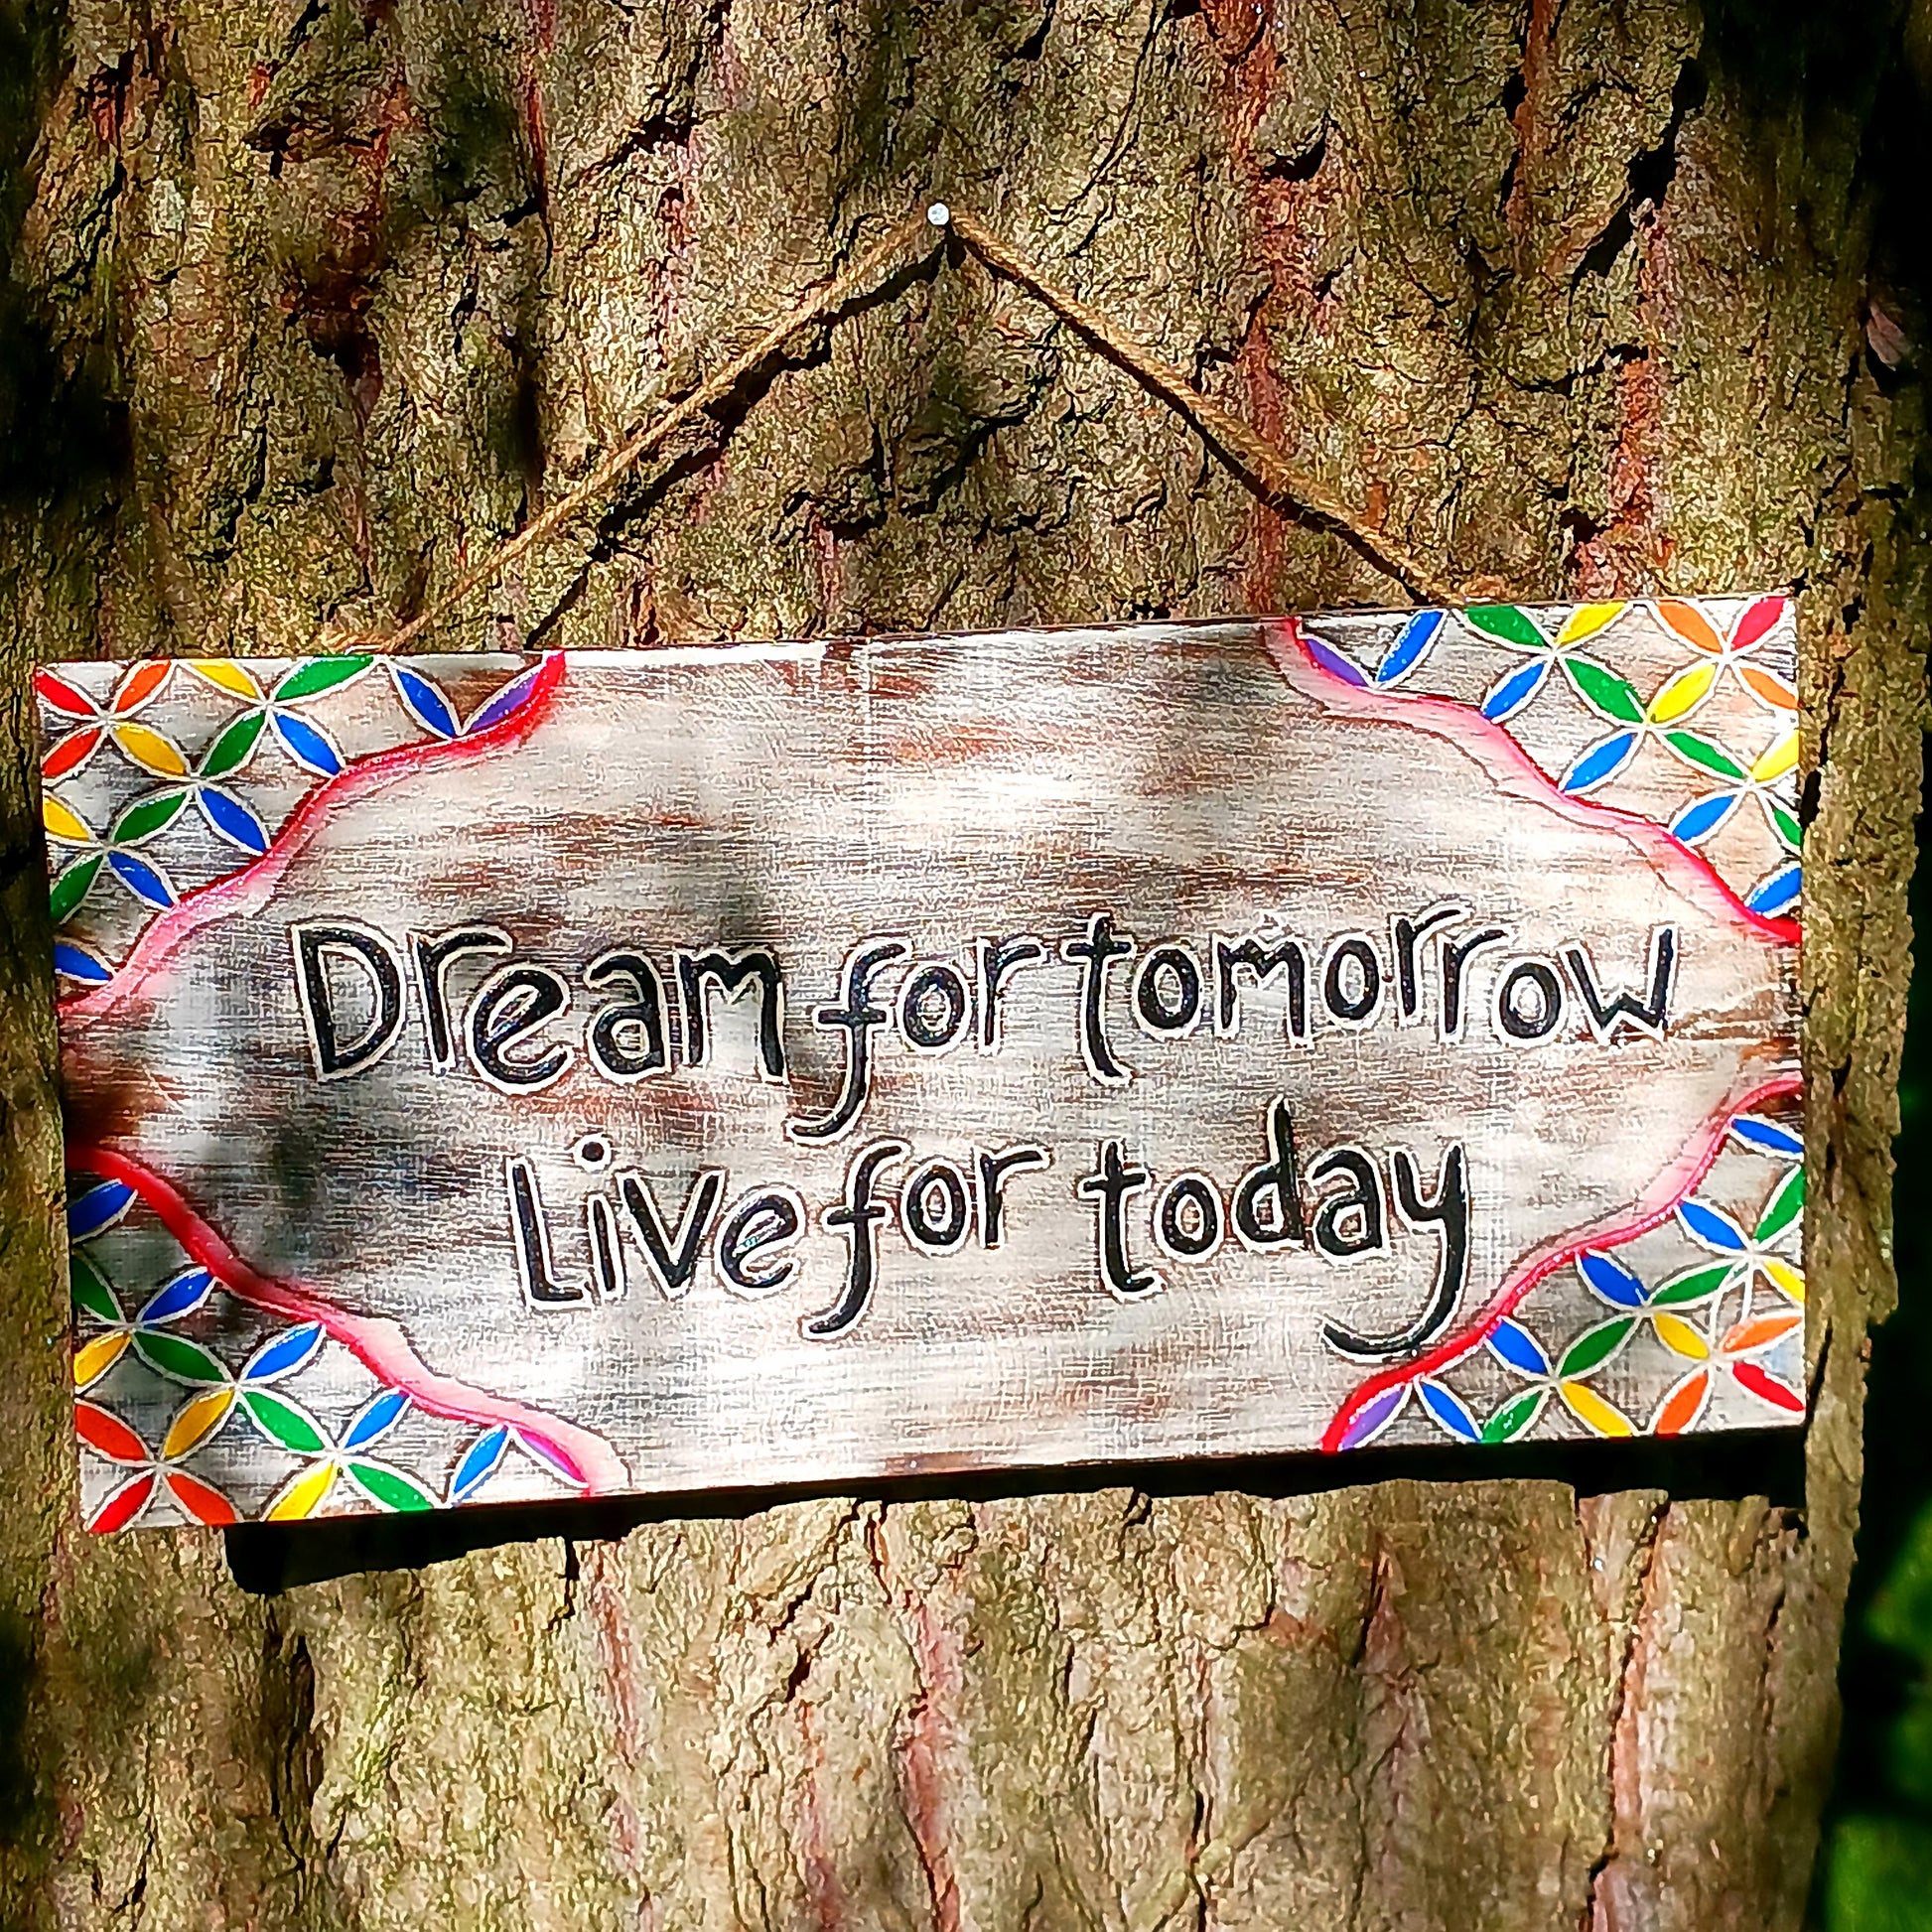 Dream for tomorrow
Live for today